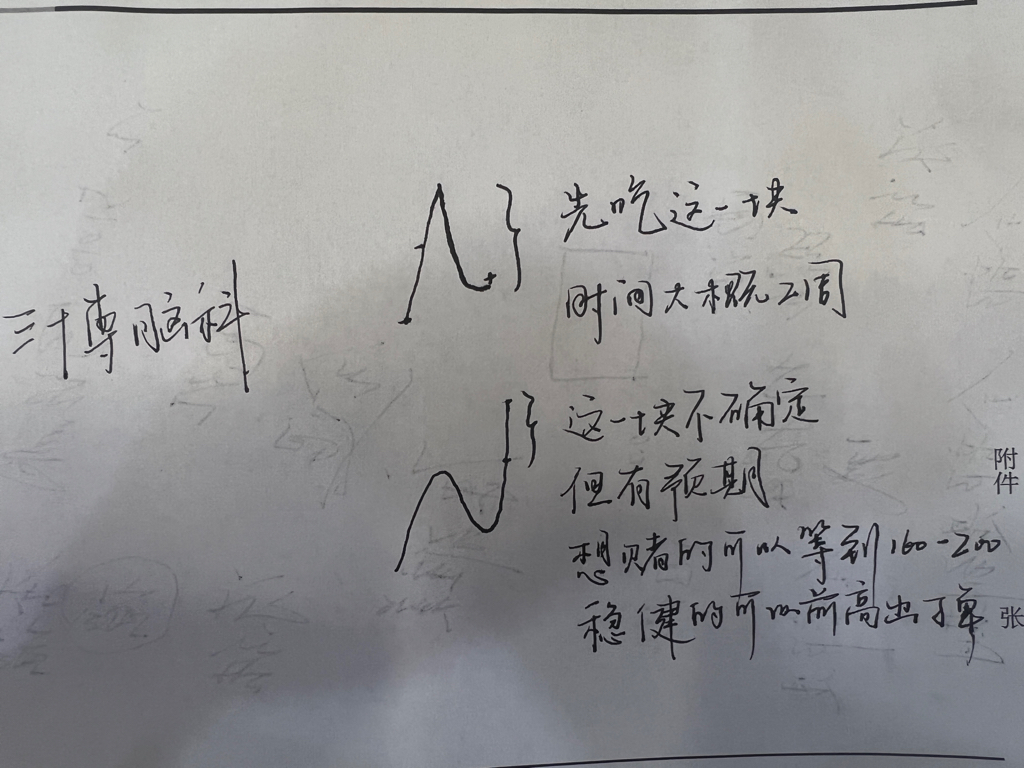 三博脑科
先吃这一块
时间大概2周
这一块不确定
但有预期
想赌的可以等到160-200
稳健的可以前高出了事
附件
张